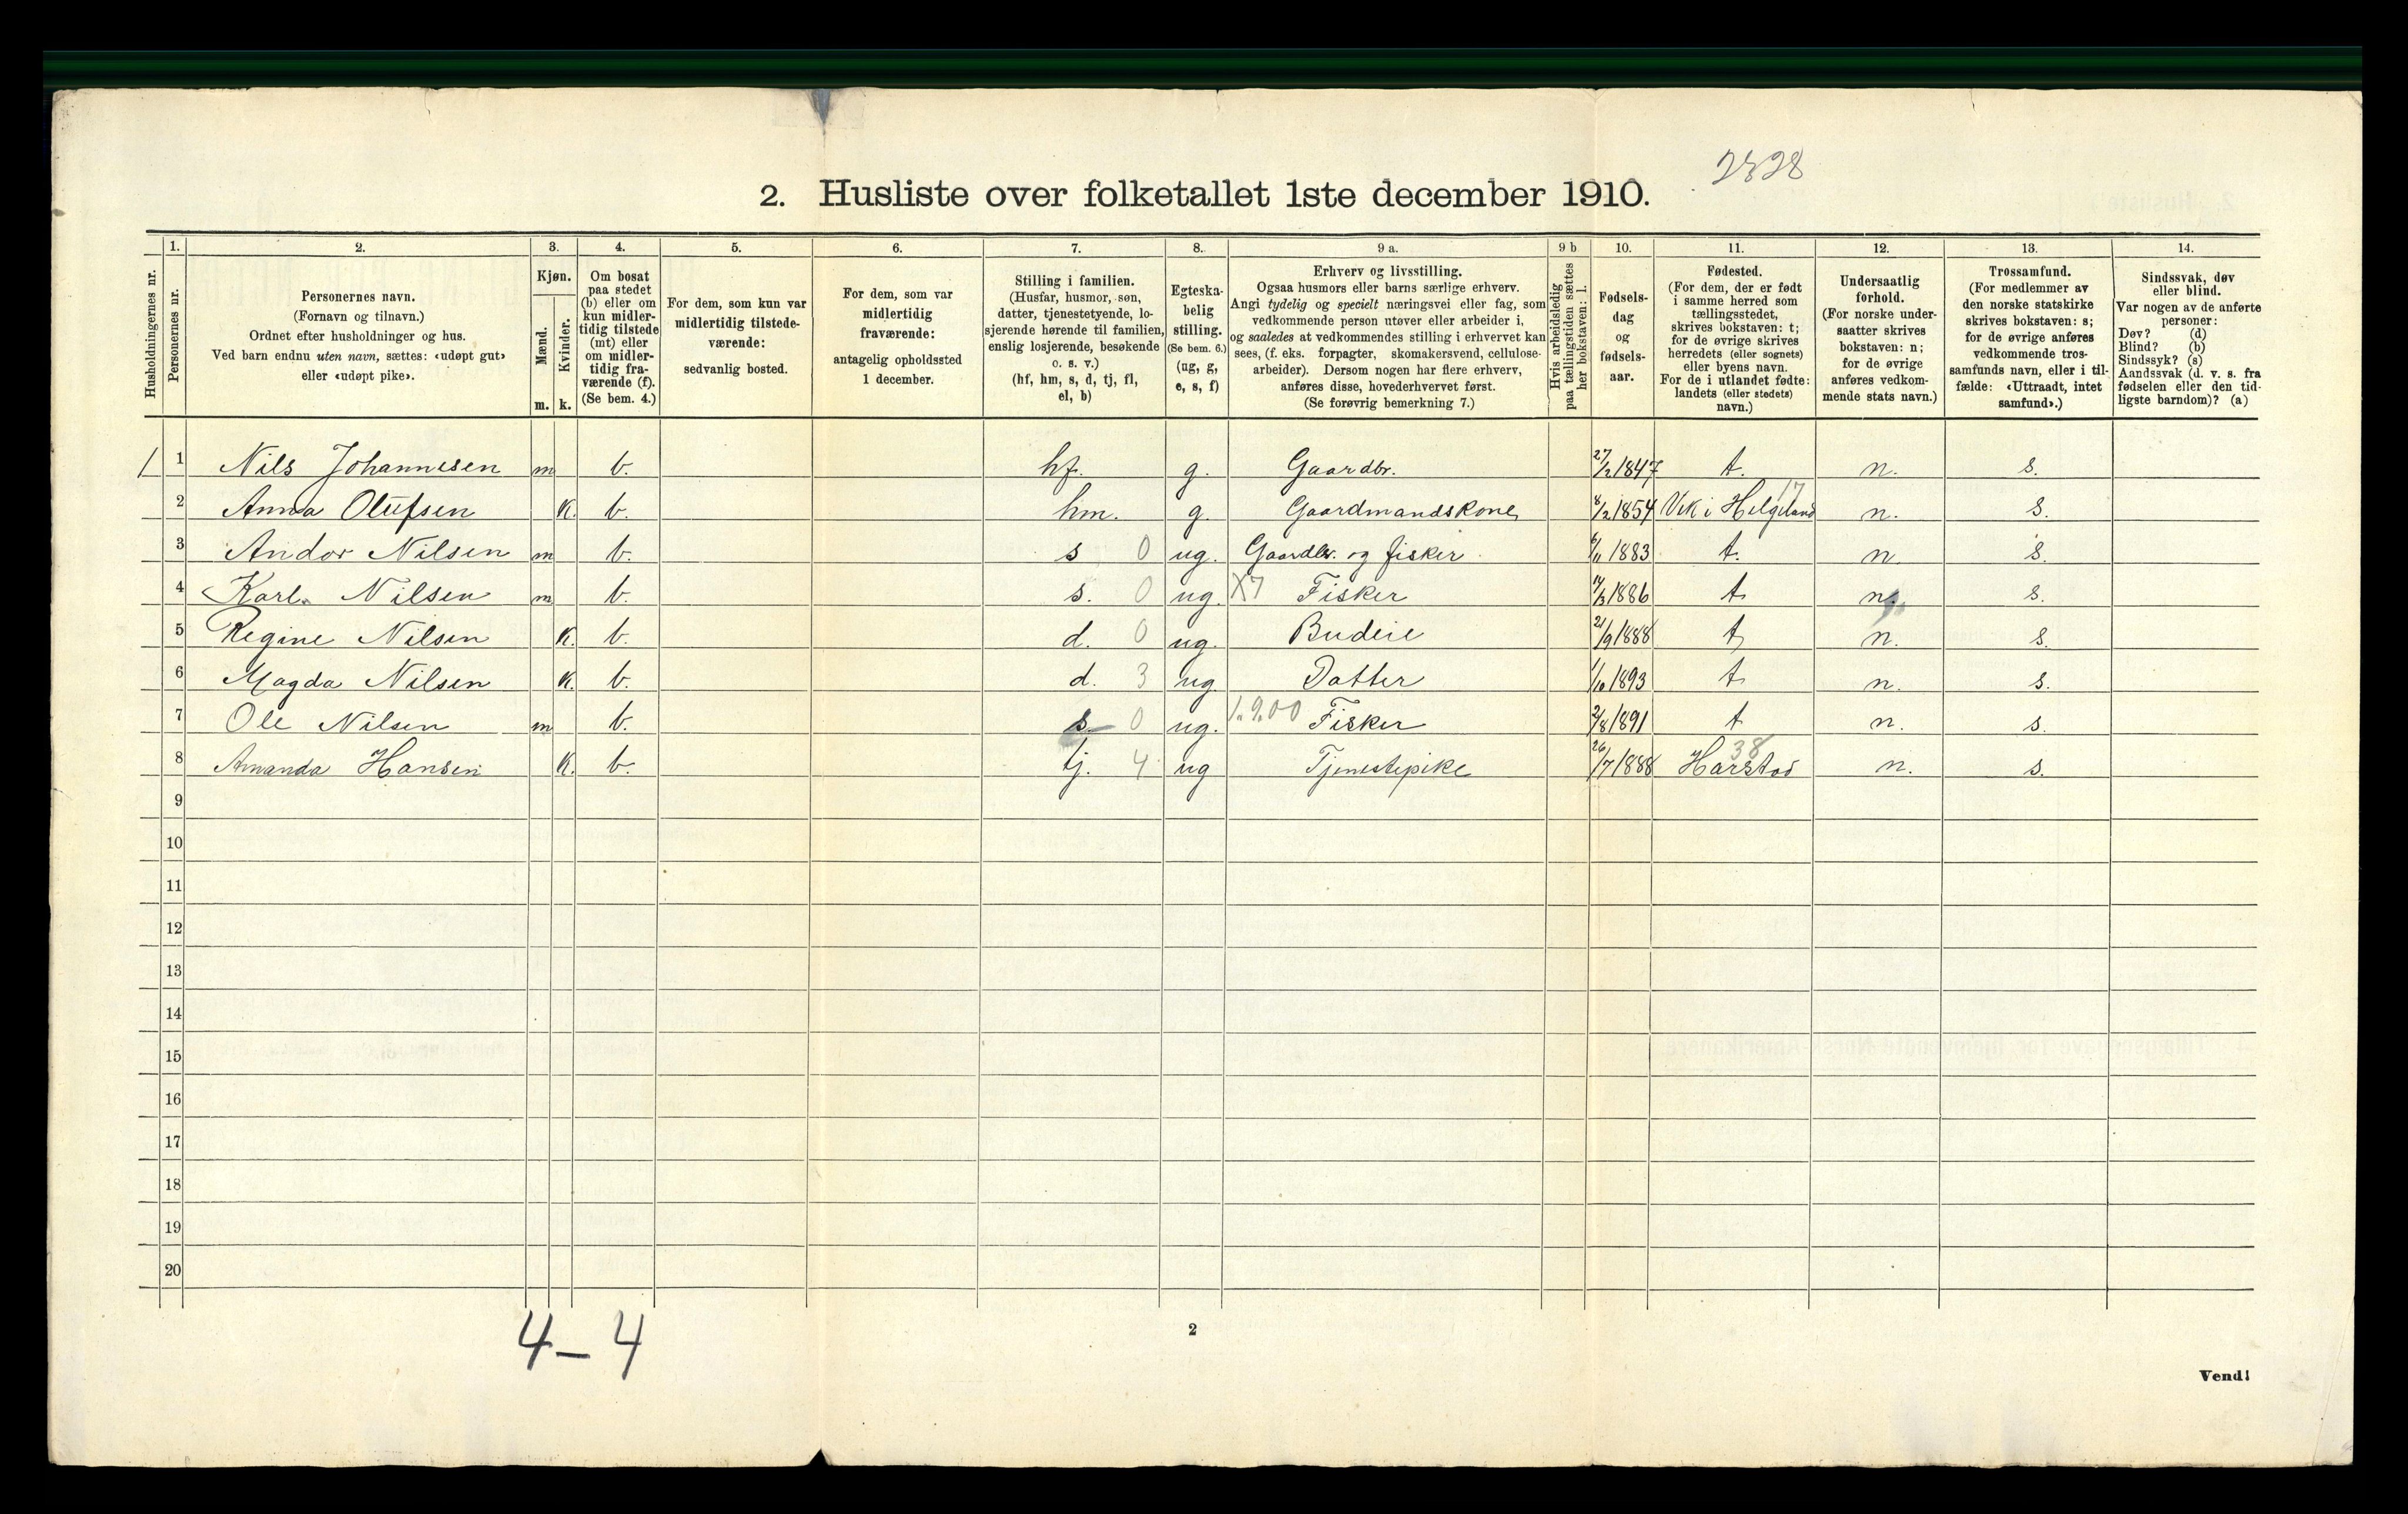 2328
2. Husliste over folketallet 1ste december 1910.
Husholdningernes nr.
1. Personernes nr.
2. Personernes navn.
(Fornavn og tilnavn.)
Ordnet efter husholdninger og hus.
Ved barn endnu uten navn, sættes: «udøpt gut»
eller «udøpt pike».
3. Kjøn.
Mænd. m.
Kvinder. k.
4. Om bosat
paa stedet
(b) eller om
kun midler-
tidig tilstede
(mt) eller
om midler-
tidig fra-
værende (f).
(Se bem. 4.)
5. For dem, som kun var
midlertidig tilstede-
værende:
sedvanlig bosted.
6. For dem, som var
midlertidig
fraværende:
antagelig opholdssted
1 december.
7. Stilling i familien.
(Husfar, husmor, søn,
datter, tjenestetyende, lo-
sjerende hørende til familien,
enslig losjerende, besøkende
o. s. v.)
(hf, hm, s, d, tj, fl,
el, b)
8. Egteska-
belig
stilling.
(Se bem. 6.)
(ug, g,
e, s, f)
9 a. Erhverv og livsstilling.
Ogsaa husmors eller barns særlige erhverv.
Angi tydelig og specielt næringsvei eller fag, som
vedkommende person utøver eller arbeider i,
og saaledes at vedkommendes stilling i erhvervet kan
sees, (f. eks. forpagter, skomakersvend, cellulose-
arbeider). Dersom nogen har flere erhverv,
anføres disse, hovederhvervet først.
(Se forøvrig bemerkning 7.)
9 b Hvis arbeidsledig
paa tællingstiden sættes
her bokstaven: l.
10. Fødsels-
dag
og
fødsels-
aar.
11. Fødested.
(For dem, der er født
i samme herred som
tællingsstedet,
skrives bokstaven: t;
for de øvrige skrives
herredets (eller sognets)
eller byens navn.
For de i utlandet fødte:
landets (eller stedets)
navn.)
12. Undersaatlig
forhold.
(For norske under-
saatter skrives
bokstaven: n;
for de øvrige
anføres vedkom-
mende stats navn.)
13. Trossamfund.
(For medlemmer av
den norske statskirke
skrives bokstaven: s;
for de øvrige anføres
vedkommende tros-
samfunds navn, eller i til-
fælde: «Uttraadt, intet
samfund».)
14. Sindssvak, døv
eller blind.
Var nogen av de anførte
personer:
Døv? (d)
Blind? (b)
Sindssyk? (s)
Aandssvak (d. v. s. fra
fødselen eller den tid-
ligste barndom)? (a)
1 1 Nils Johannesen m b. hf. g. Gaardbr. 27/2 1847 t. n. s.
2 Anna Olufsen K. b. hm. g. Gaardmandskone 8/2 1854 Vik i Helgeland 17 n. s.
3 Andor Nilsen m b. s 0 ug. Gaardbr. og fisker 6/11 1883 t. n. s.
4 Karl Nilsen m b. s. 0 ug. X7 Fisker 14/3 1886 t n. s.
5 Regine Nilsen K. b. d. 0 ug. Budeie 21/9 1888 t n. s.
6 Magda Nilsen K. b. d. 3 ug. Datter 1/10 1893 t n. s.
7 Ole Nilsen m b. s 0 ug. 1.9.00 Fisker 2/8 1891 t n. s.
8 Amanda Hansen K. b. tj. 4 ug Tjenestepike 26/7 1888 Harstad 38 n. s.
9
10
11
12
13
14
15
16
17
18
19
20
4 – 4
2
Vend!